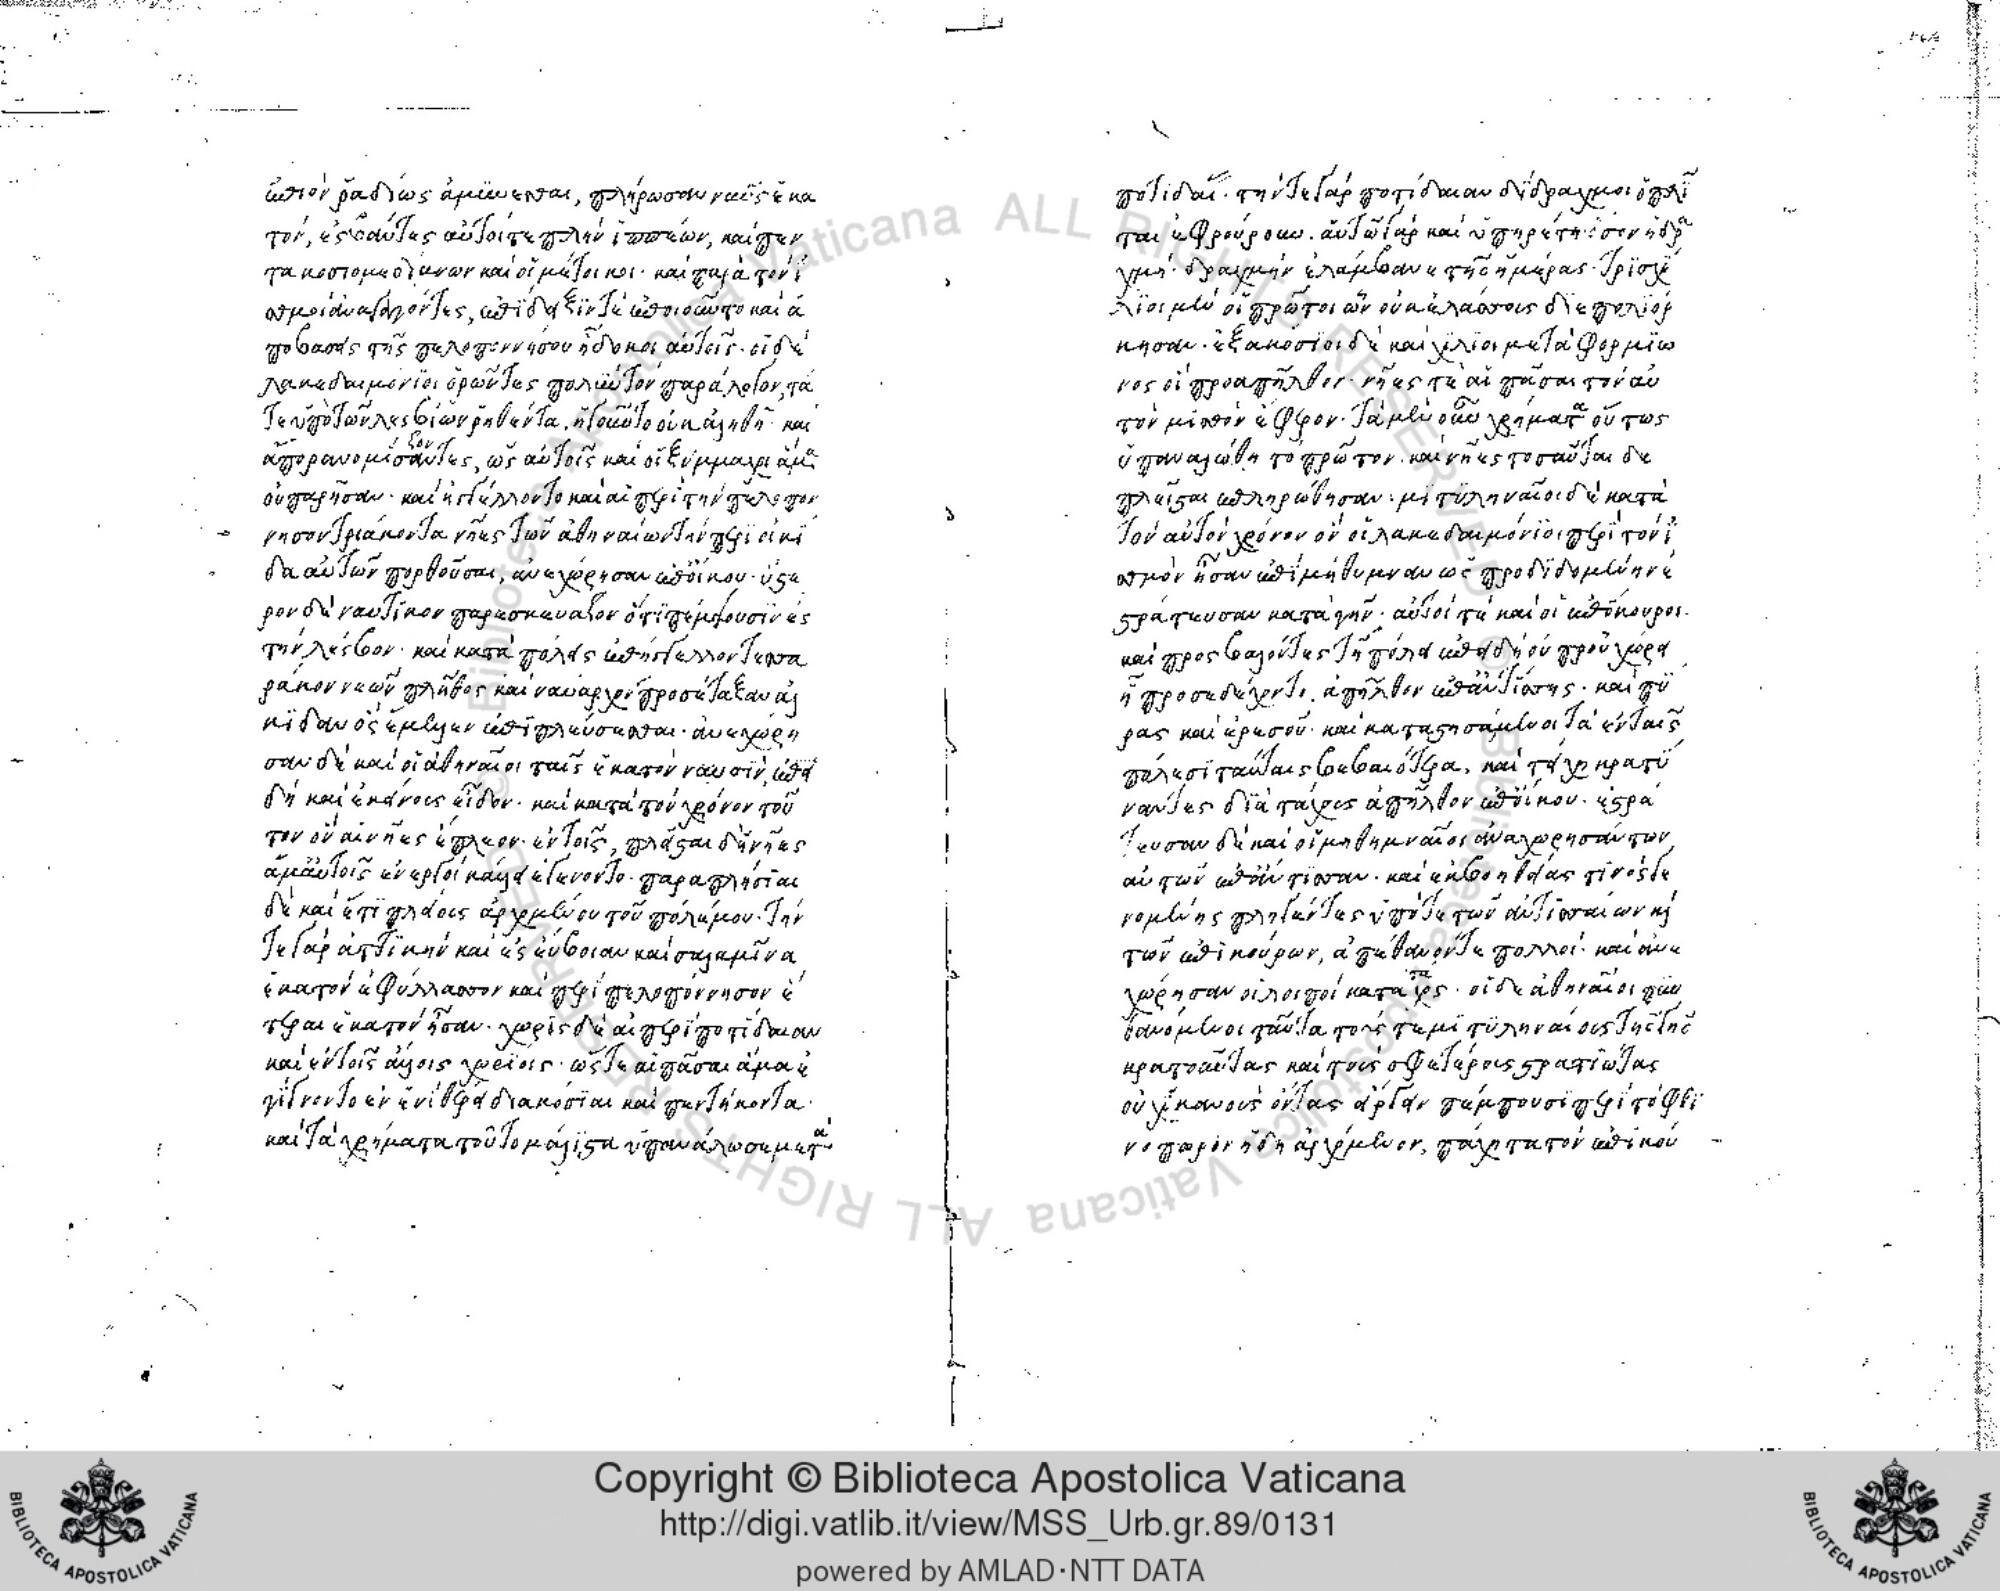 ἐπιὸν ῥαδίως ἀμύνεσθαι, πλήρωσαν ναῦς ἑκα
τόν, ἐσβάντες αὐτοί τε πλὴν ἱππέων, καὶ πεν
τακοσιομεδίμνων καὶ οἱ μέτοικοι· καὶ παρὰ τὸν ἰ
σθμὸν ἀναγαγόντες, ἐπίδειξίν τε ἐποιοῦντο καὶ ἀ
ποβάσεις τῆς πελοποννήσου ᾗ δοκοῖ αὐτοῖς· οἱ δὲ
λακεδαιμόνιοι ὁρῶντες πολὺν τὸν παράλογον, τά
τε ὑπὸ τῶν λεσβίων ῥηθέντα, ἡγοῦντο οὐκ ἀληθῆ· καὶ
ἄπορα νομίζοντες, ὡς αὐτοῖς καὶ οἱ ξύμμαχοι ἅμα
οὐ παρῆσαν· καὶ ἠγγέλλοντο καὶ αἱ περὶ τὴν πελοπον
νησον τριάκοντα νῆες τῶν ἀθηναίων τὴν περιοικί
δα αὐτῶν πορθοῦσαι, ἀνεχώρησαν ἐπ' οἴκου· ὕστε
ρον δὲ ναυτικὸν παρεσκεύαζον ὅτι πέμψουσιν ἐς
τὴν λέσβον· καὶ κατὰ πόλεις ἐπήγγελλον τεσσα
ράκοντα νεῶν πλῆθος καὶ ναύαρχον προσέταξαν ἀλ
κίδαν ὃς ἔμελλεν ἐπιπλεύσεσθαι· ἀνεχώρη
σαν δὲ καὶ οἱ ἀθηναῖοι ταῖς ἑκατὸν ναυσίν, ἐπει
δὴ καὶ ἐκείνους εἶδον· καὶ κατὰ τὸν χρόνον τοῦ
τον ὃν αἱ νῆες ἔπλεον· ἐν τοῖς, πλεῖσται δὴ νῆες
ἅμ' αὐτοῖς ἐνεργοὶ κάλλει ἐγένοντο· παραπλήσιαι
δὲ καὶ ἔτι πλείους ἀρχομένου τοῦ πολέμου· τήν
τε γὰρ ἀττικὴν καὶ ἐς εὔβοιαν καὶ σαλαμῖνα
ἑκατὸν ἐφύλασσον καὶ περὶ πελοπόννησον ἕ
τεραι ἑκατὸν ἦσαν· χωρὶς δὲ αἱ περὶ ποτίδαιαν
καὶ ἐν τοῖς ἄλλοις χωρίοις· ὥστε αἱ πᾶσαι ἅμα ἐ
γίγνοντο ἐν ἑνὶ θέρει διακόσιαι καὶ πεντήκοντα·
καὶ τὰ χρήματα τοῦτο μάλιστα ὑπανάλωσε μετὰ
ποτιδαίας· τήν τε γὰρ ποτίδαιαν δίδραχμοι ὁπλῖ
ται ἐφρούρουν· αὑτῷ γὰρ καὶ ὑπηρέτῃ ἴσον ἡ δρα
χμή· δραχμὴν ἐλάμβανε τῆς ἡμέρας· τρισχί
λιοι μὲν οἱ πρῶτοι ὧν οὐκ ἐλάσσους διεπολιόρ
κησαν· ἑξακόσιοι δὲ καὶ χίλιοι μετὰ φορμίω
νος οἳ προαπῆλθον· νῆές τε αἱ πᾶσαι τὸν αὐ
τὸν μισθὸν ἔφερον· τὰ μὲν οὖν χρήματα οὕτως
ὑπαναλώθη τὸ πρῶτον· καὶ νῆες τοσαῦται δὴ
πλεῖσται ἐπληρώθησαν· μιτυληναῖοι δὲ κατὰ
τὸν αὐτὸν χρόνον ὃν οἱ λακεδαιμόνιοι περὶ τὸν ἰ
σθμὸν ἦσαν ἐπὶ μήθυμναν ὡς προδιδομένην ἐ
στράτευσαν κατὰ γῆν· αὐτοί τε καὶ οἱ ἐπίκουροι·
καὶ προσβαλόντες τῇ πόλει ἐπειδὴ οὐ προὐχώρει
ᾗ προσεδέχοντο, ἀπῆλθον ἐπ' ἀντίσσης· καὶ πύ
ρας καὶ ἐρεσοῦ· καὶ καταστησάμενοι τὰ ἐν ταῖς
πόλεσι ταύταις βεβαιότερα, καὶ τείχη κρατύ
ναντες διὰ τάχους ἀπῆλθον ἐπ' οἴκου· ἐστρά
τευσαν δὲ καὶ οἱ μηθυμναῖοι ἀναχωρησάντων
αὐτῶν ἐπ' ἄντισσαν· καὶ ἐκβοηθείας τινὸς γε
νομένης πληγέντες ὑπό τε τῶν ἀντισσαίων καὶ
τῶν ἐπικούρων, ἀπέθανόν τε πολλοί· καὶ ἀνε
χώρησαν οἱ λοιποὶ κατὰ τάχος· οἱ δὲ ἀθηναῖοι πυν
θανόμενοι ταῦτα τούς τε μιτυληναίους τῆς γῆς
κρατοῦντας καὶ τοὺς σφετέρους στρατιώτας
οὐχ ἱκανοὺς ὄντας εἴργειν πέμπουσι περὶ τὸ φθι
νόπωρον ἤδη ἀρχόμενον, πάχητα τὸν ἐπικού
Copyright © Biblioteca Apostolica Vaticana
http://digi.vatlib.it/view/MSS_Urb.gr.89/0131
powered by AMLAD·NTT DATA
BIBLIOTECA APOSTOLICA VATICANA
BIBLIOTECA APOSTOLICA VATICANA